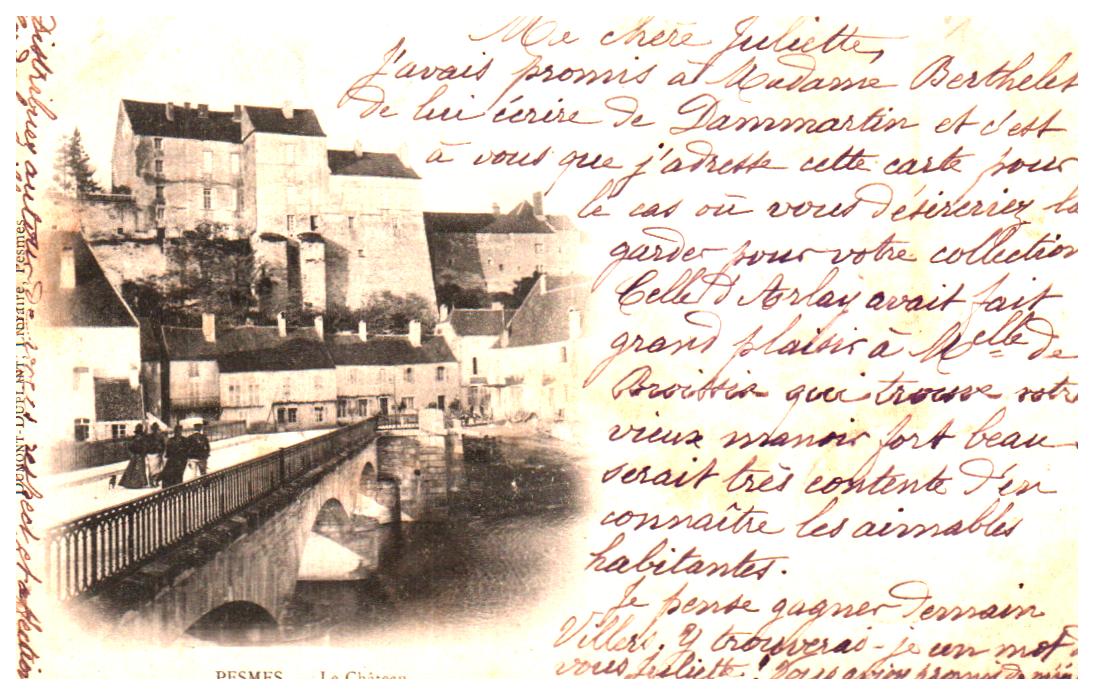 Ma chère Juliette,
J'avais promis à Madame Berthelet
de lui écrire de Dammartin et c'est
à vous que j'adresse cette carte pour
le cas où vous désireriez la
garder pour votre collection
Celle d'Arlay avait fait
grand plaisir à Melle de
Broissia qui trouve votre
vieux manoir fort beau
serait très contente d'en
connaître les aimables
habitantes.
Je pense gagner demain
Villers. Y trouverai-je un mot d
vous Juliette?
Distribuez autour de respect et
Libraire, Pesmes
PESMES Le Château